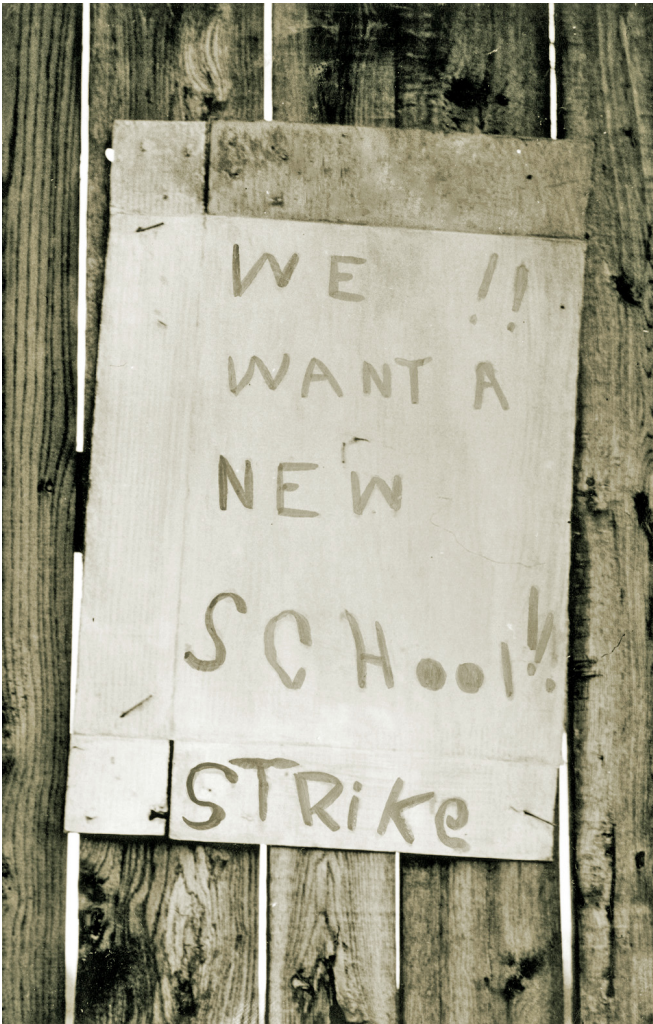 WE !!
WANT A
NEW
SCHOOl!!
STRiKe